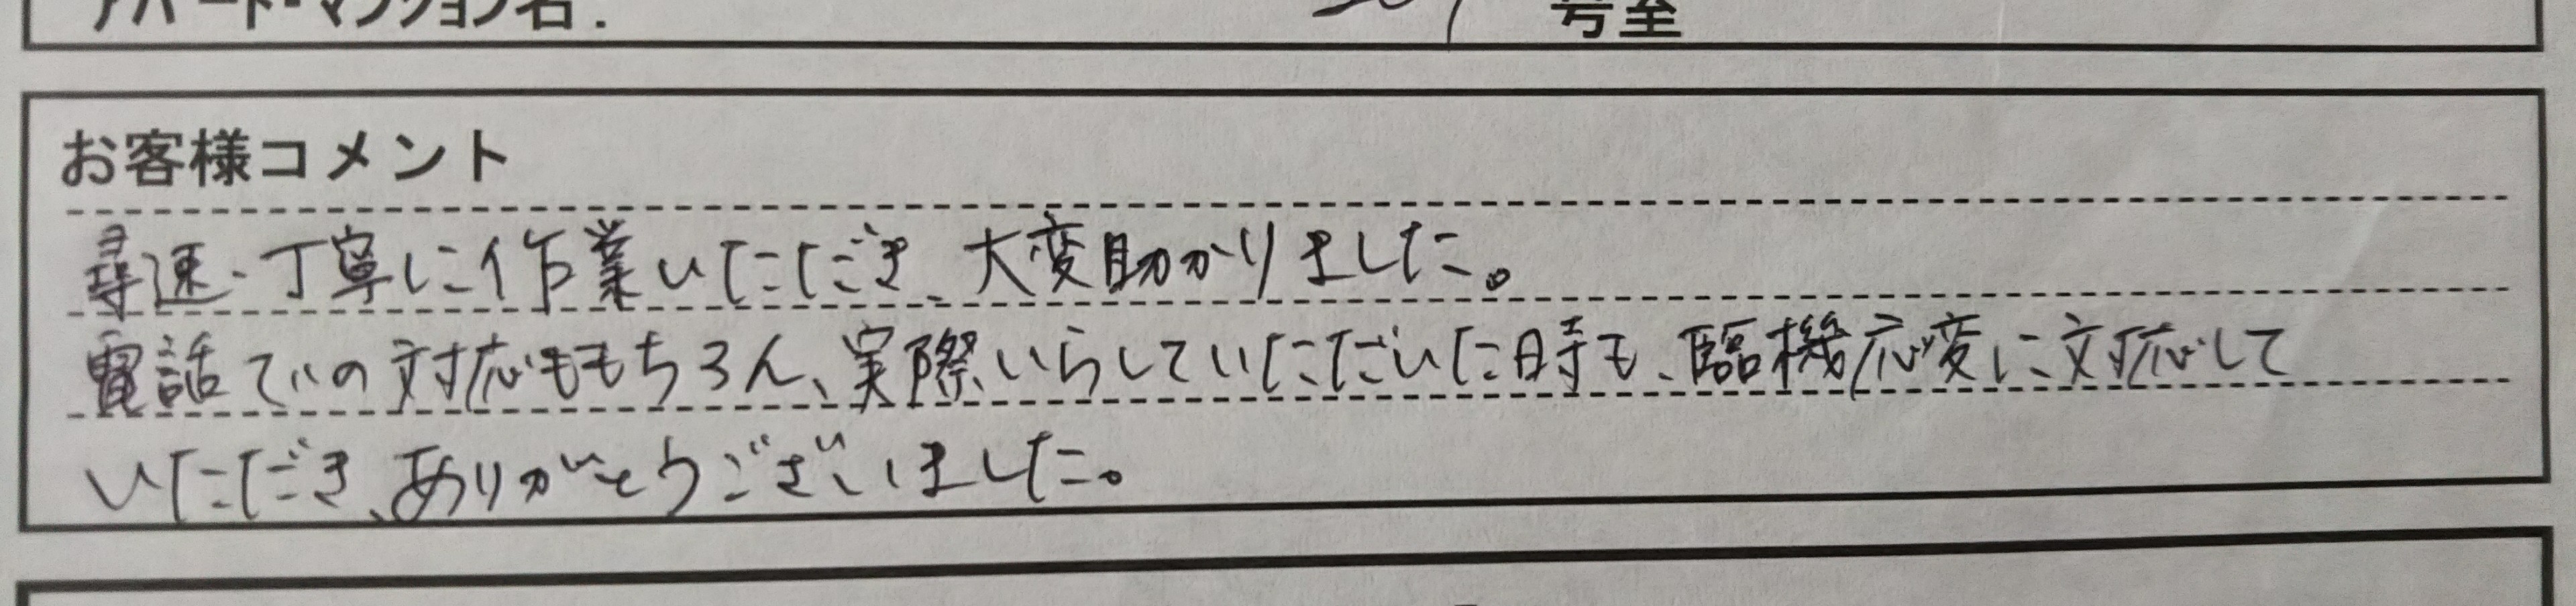 アパート・マンション名:　号室
お客様コメント
尋速・丁寧に作業いただき、大変助かりました。
電話での対応ももちろん、実際いらしていただいた時も、臨機応変に対応して
いただき、ありがとうございました。